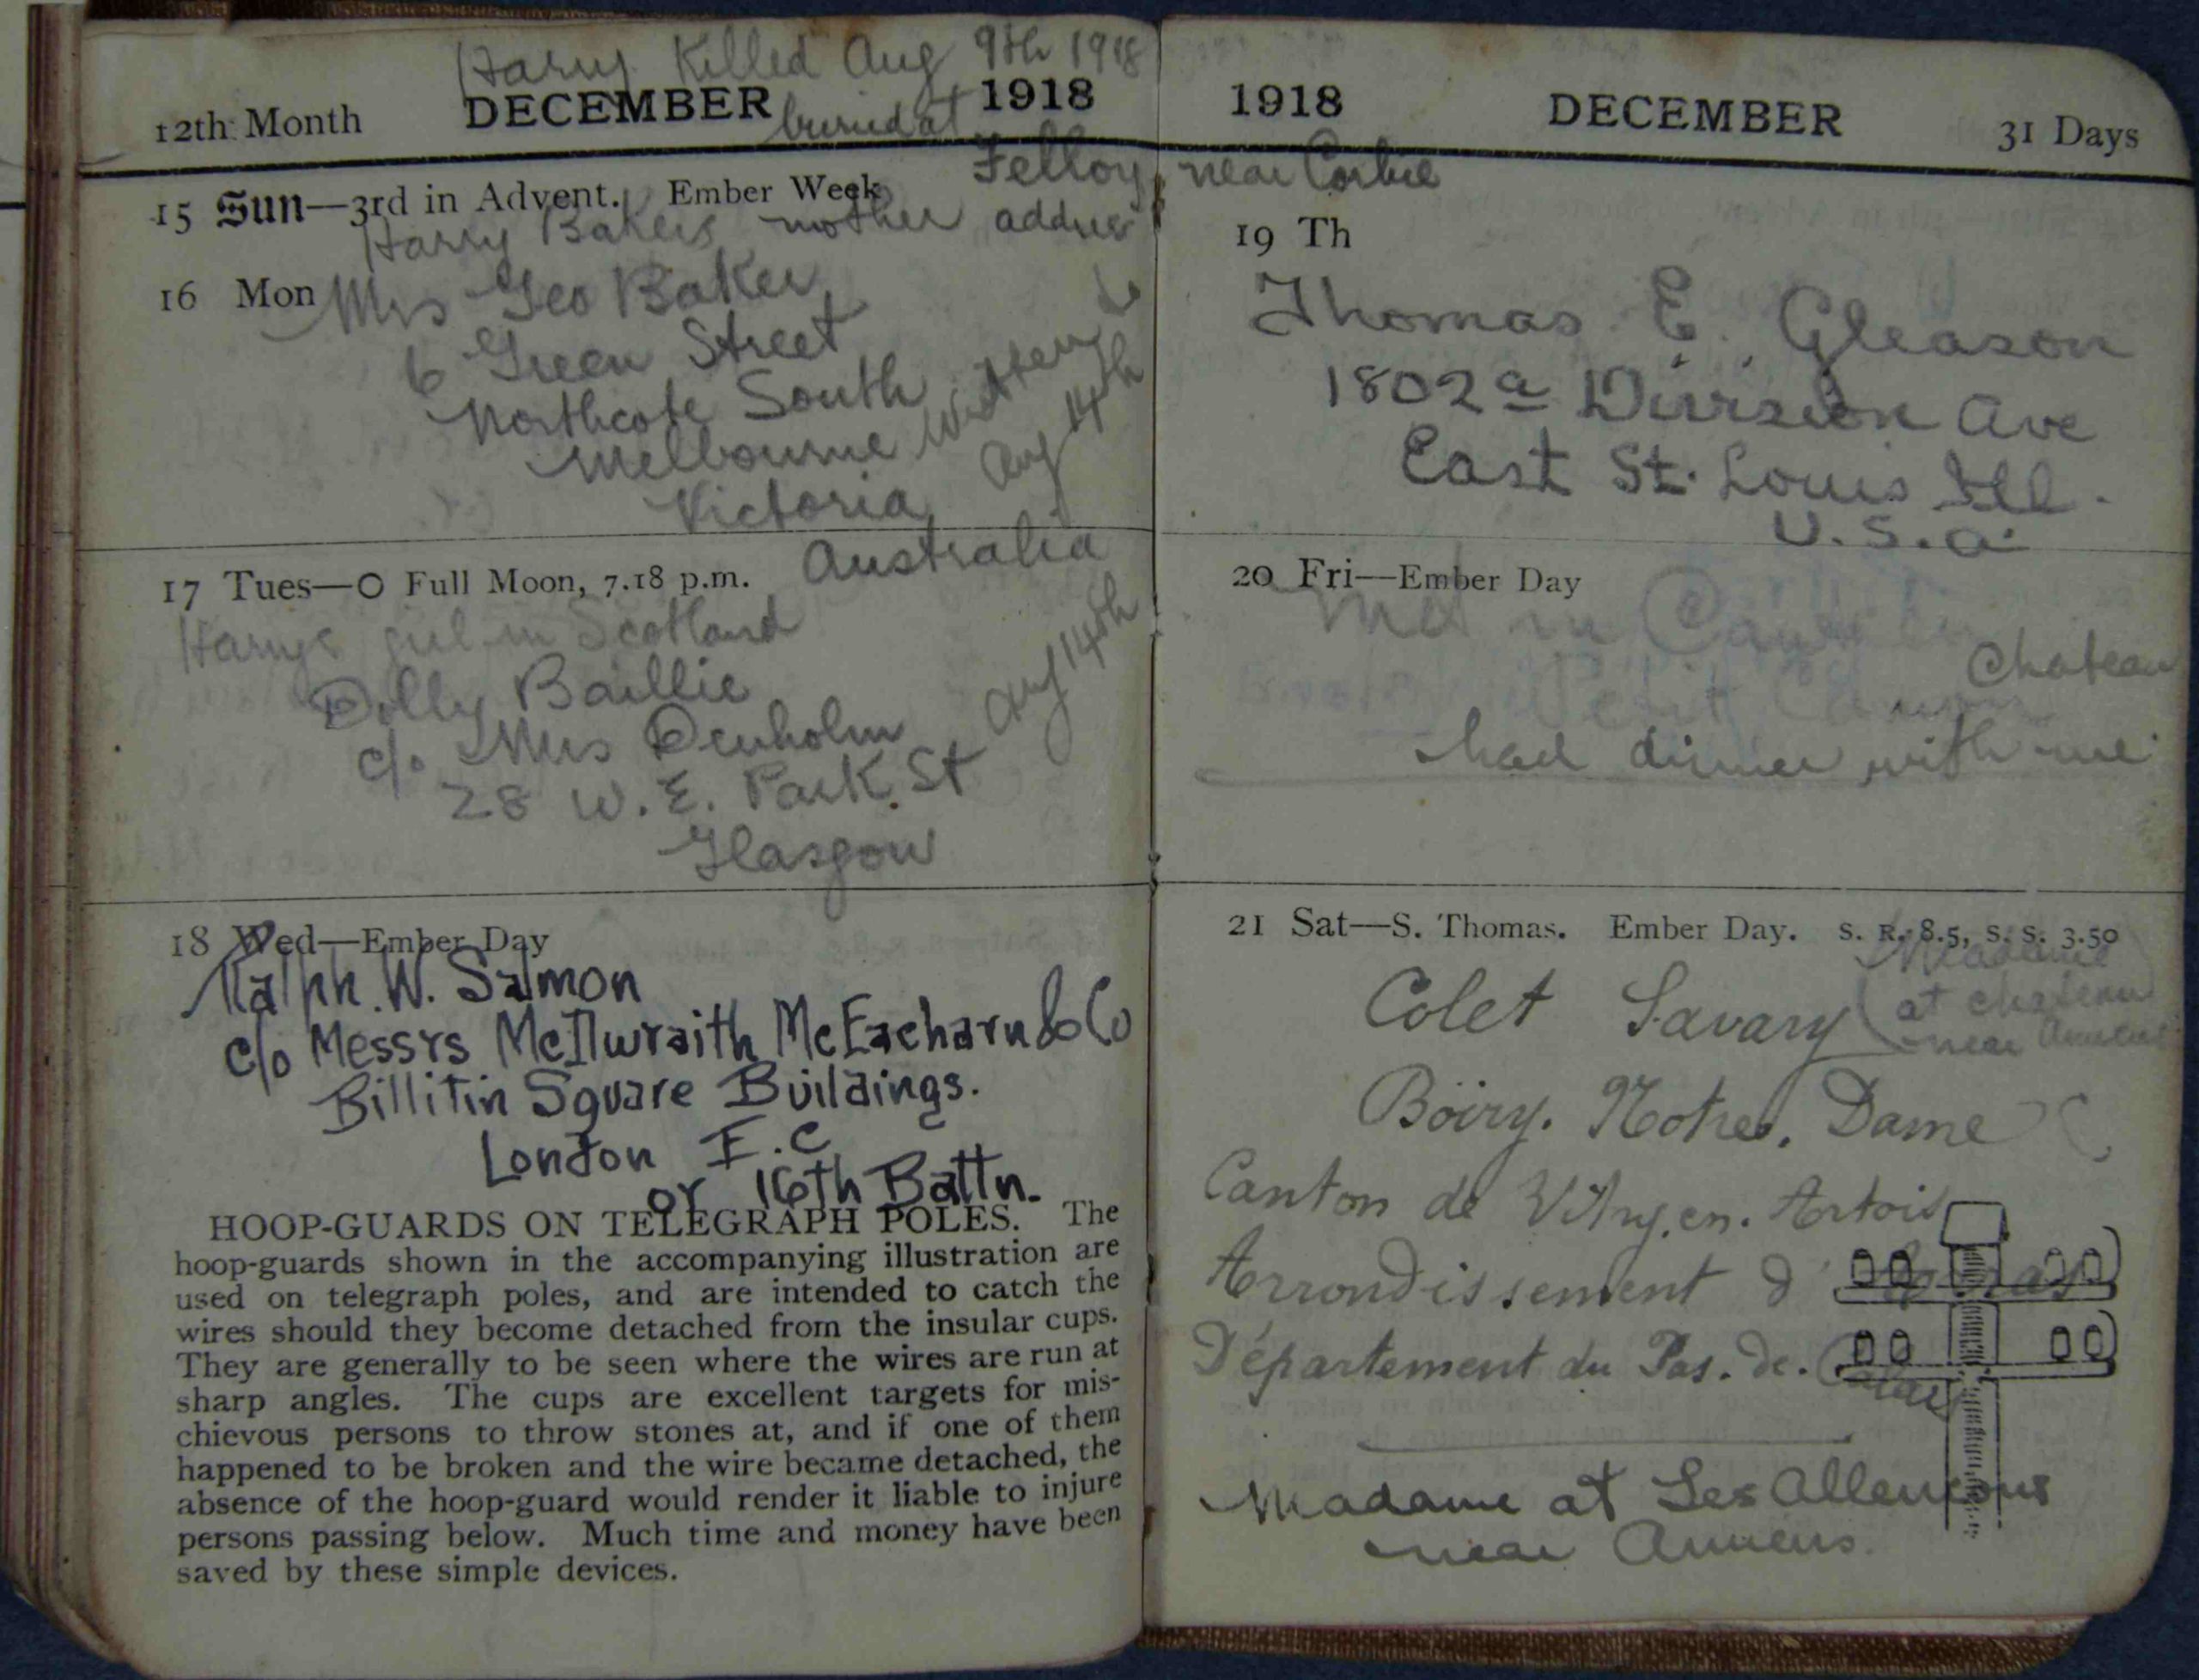 Harry Killed Aug 9th 1918
12th Month DECEMBER 1918
buried at
Felloy near Corbie
15 Sun—3rd in Advent. Ember Week
Harry Bakers mother address
16 Mon
Mrs Geo Baker
6 Green Street
Northcote South
Melbourne
Victoria
Australia
Written to
Aug 14th
17 Tues—O Full Moon, 7.18 p.m.
Harrys girl in Scotland
Dolly Baillie
c/o Mrs Denholm
28 W. E. Park. St
Glasgow
Aug 14th
18 Wed—Ember Day
Ralph. W. Salmon
c/o Messrs McIlwraith McEacharn & Co
Billitin Square Buildings.
London E.C
or 16th Battn.
HOOP-GUARDS ON TELEGRAPH POLES. The
hoop-guards shown in the accompanying illustration are
used on telegraph poles, and are intended to catch the
wires should they become detached from the insular cups.
They are generally to be seen where the wires are run at
sharp angles. The cups are excellent targets for mis-
chievous persons to throw stones at, and if one of them
happened to be broken and the wire became detached, the
absence of the hoop-guard would render it liable to injure
persons passing below. Much time and money have been
saved by these simple devices.
1918 DECEMBER 31 Days
19 Th
Thomas E. Gleason
1802a Division Ave
East St. Louis Ill.
U.S.a.
20 Fri—Ember Day
Met in
Chateau
Petit
had dinner with me
21 Sat—S. Thomas. Ember Day. S. R. 8.5, S. S. 3.50
Colet Savary
Madame
at chateau
near Amiens
Böiry. Notre. Dame
Canton de Vitry. en. Artois
Arrondissement d'Arras
Département du Pas. de. Calais
Madame at Les Allencons
near Amiens.